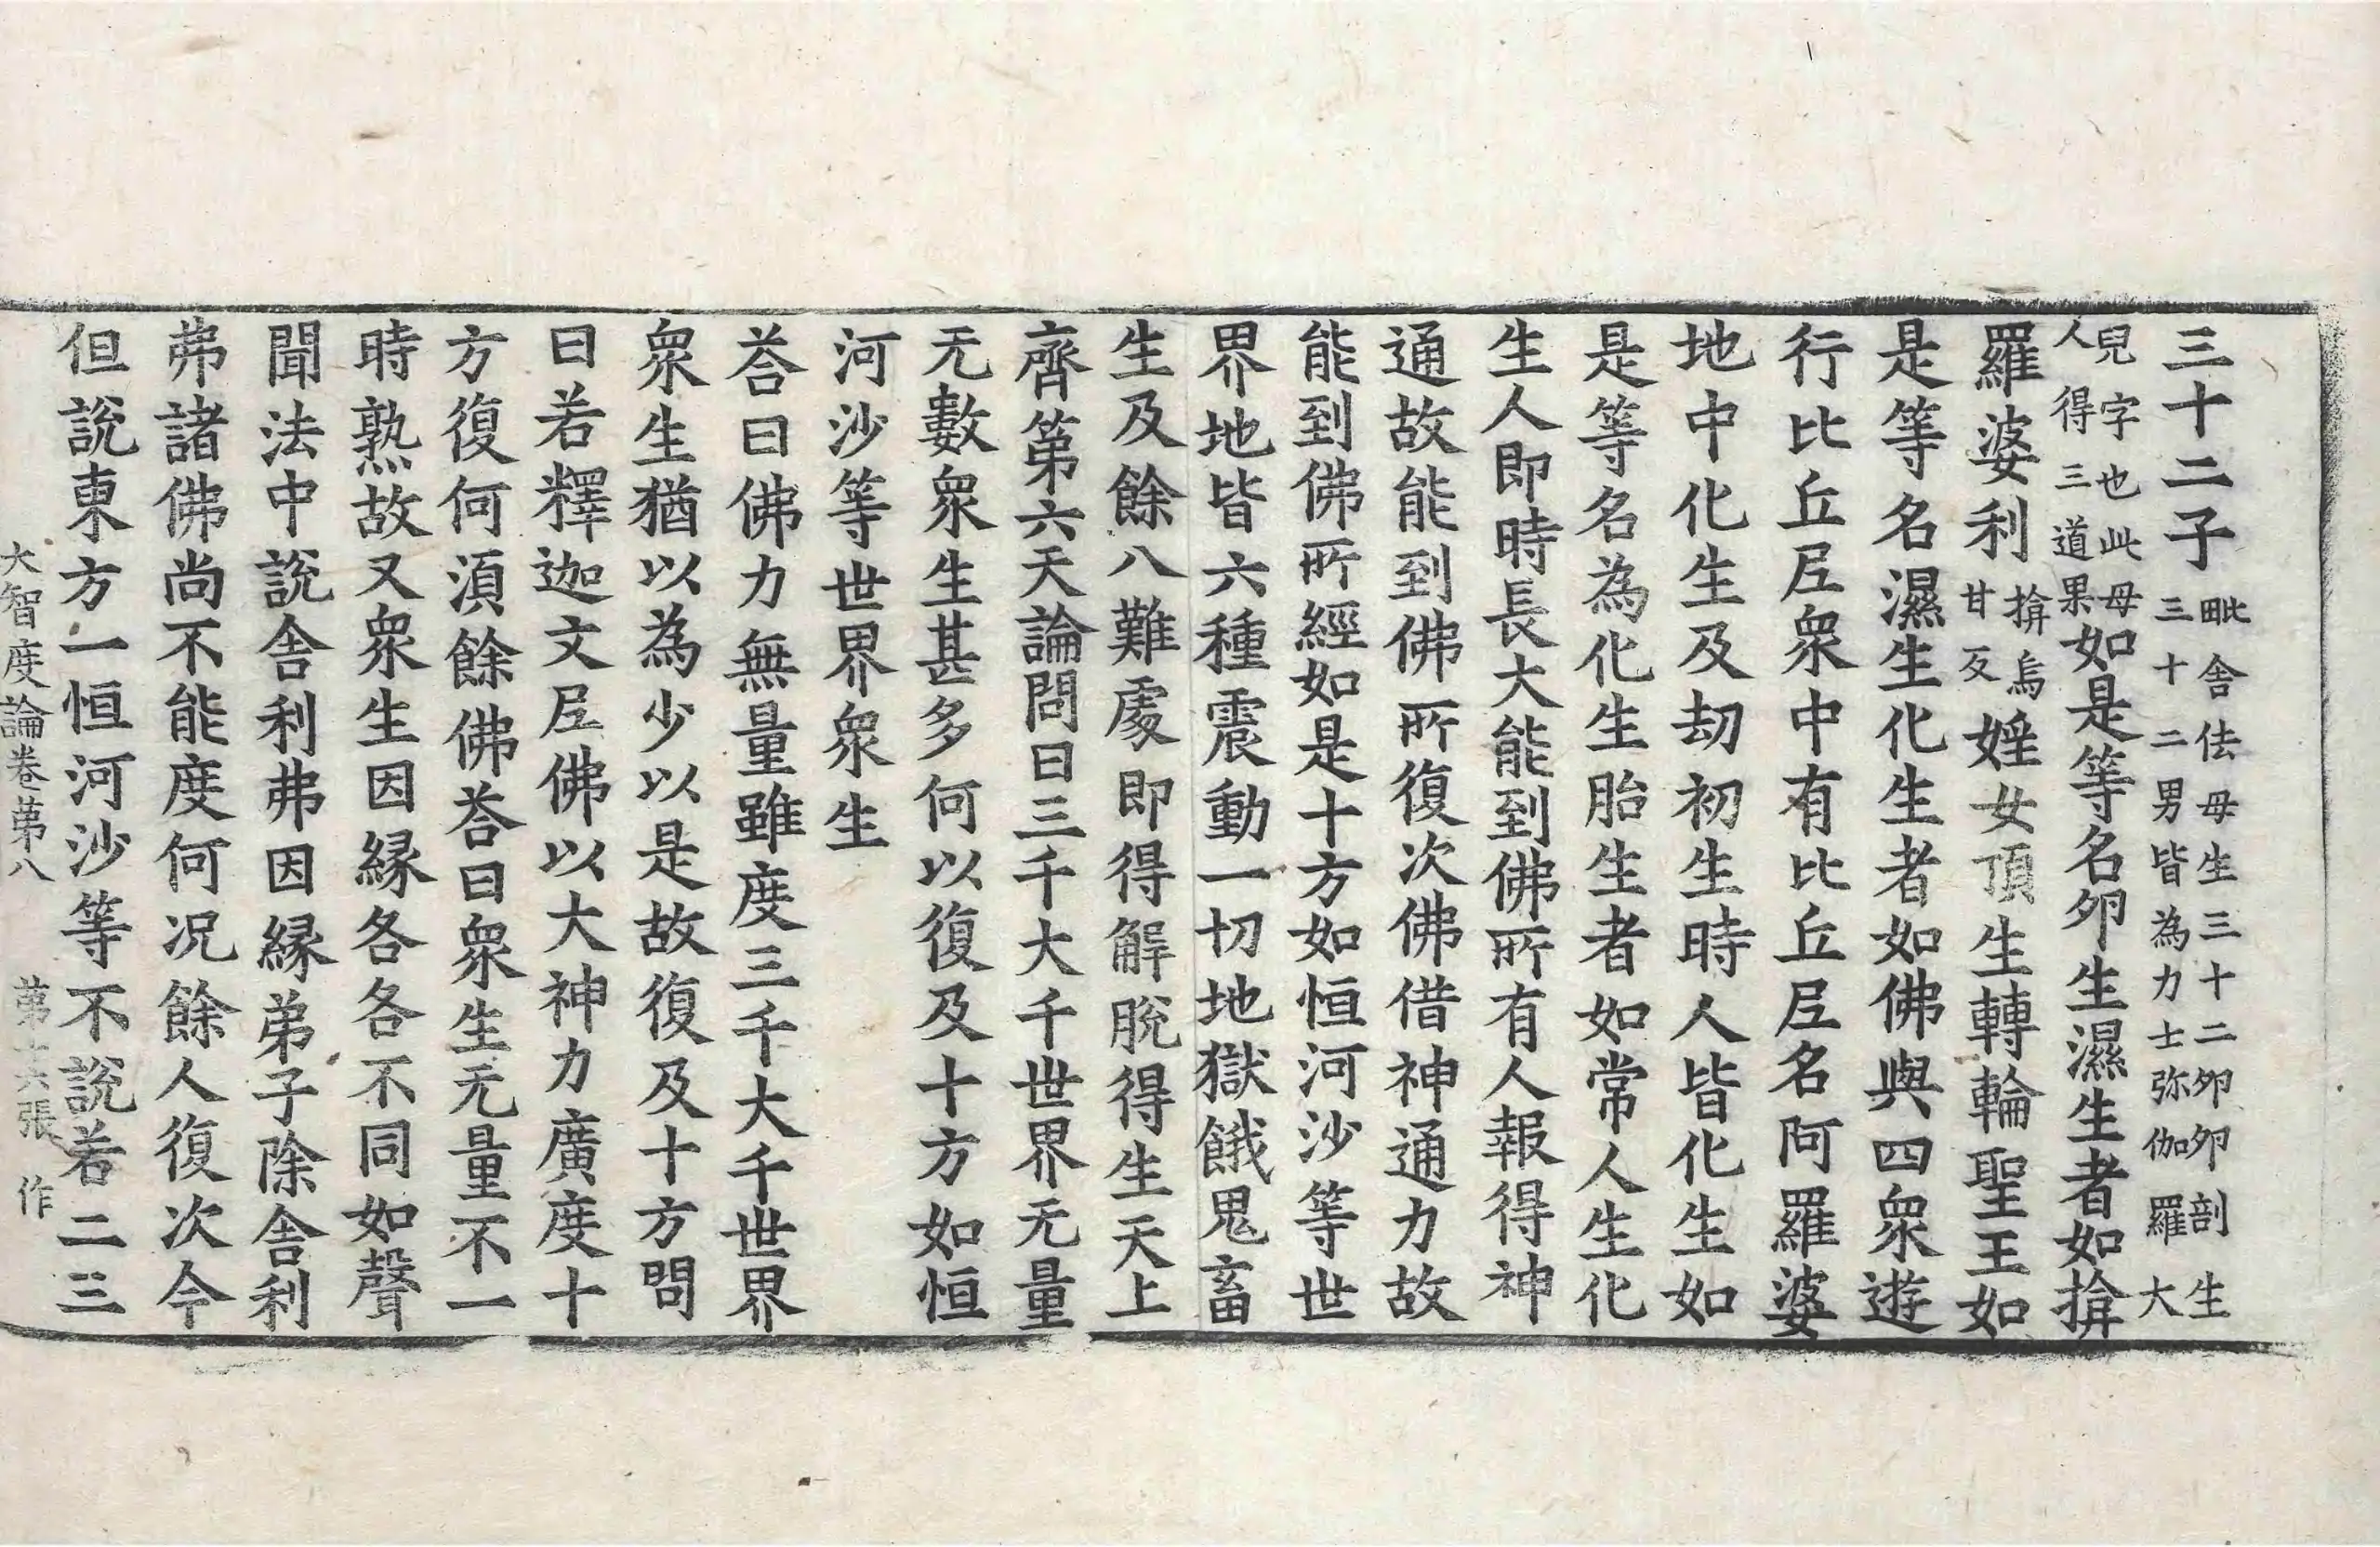 三十二子毗舍佉母生三十二卵卵剖生三十二男皆為力士弥伽羅大
兒字也此母人得三道果如是等名卵生濕生者如揜
羅婆利揜烏甘反婬女頂生轉輪聖王如
是等名濕生化生者如佛與四衆遊
行比丘尼衆中有比丘尼名阿羅婆
地中化生及劫初生時人皆化生如
是等名為化生胎生者如常人生化
生人即時長大能到佛所有人報得神
通故能到佛所復次佛借神通力故
能到佛所經如是十方如恒河沙等世
界地皆六種震動一切地獄餓鬼畜
生及餘八難處即得解脫得生天上
齊第六天論問曰三千大千世界无量
无數衆生甚多何以復及十方如恒
河沙等世界衆生
荅曰佛力無量雖度三千大千世界
衆生猶以為少以是故復及十方問
曰若釋迦文尼佛以大神力廣度十
方復何湏餘佛荅曰衆生无量不一
時熟故又衆生因緣各各不同如聲
聞法中說舍利弗因緣弟子除舍利
弗諸佛尚不能度何况餘人復次今
但說東方一恒河沙等不說若二三
大智度論卷第八 第十六張 作